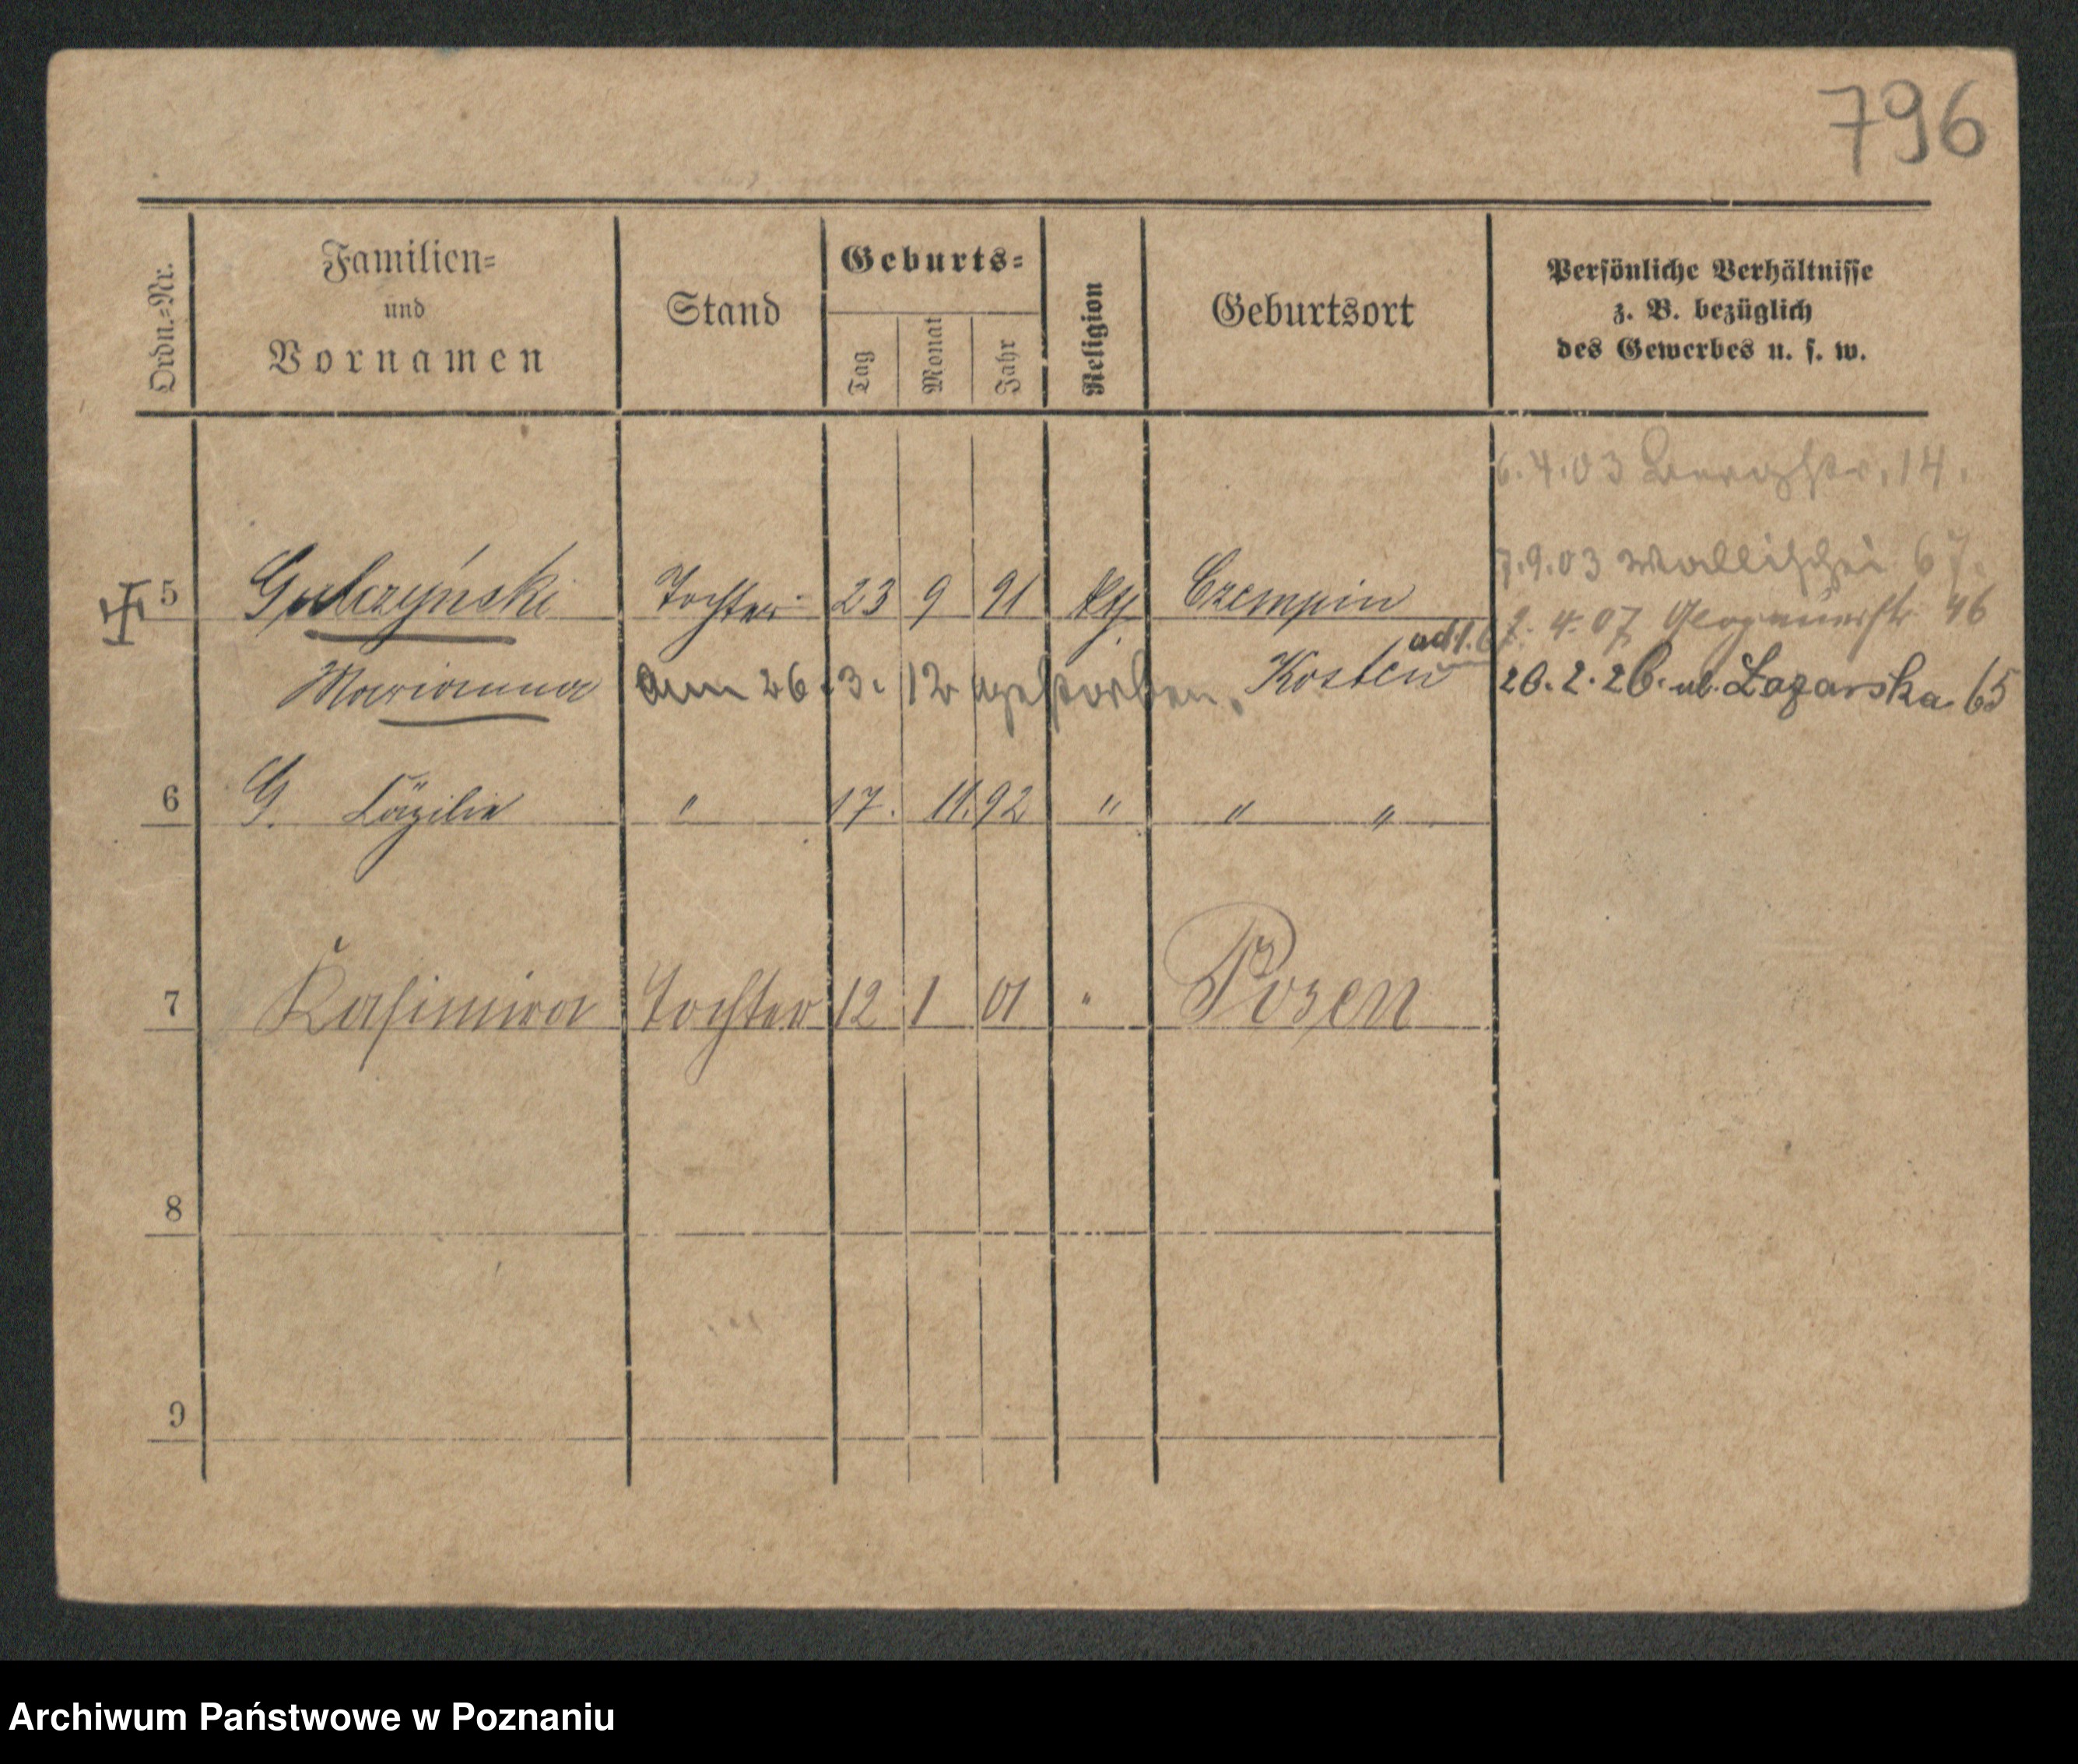 796
Ordn.=Nr.
Familien=
und
Vornamen
Stand
Geburts=
Tag
Monat
Jahr
Religion
Geburtsort
Persönliche Verhältnisse
z. B. bezüglich
des Gewerbes u. s. w.
6.4.03 Bergstr. 14.
7.9.03 Wallischei 67.
5 Gulczyński Tochter 23 9 91 Czempin
2. 4. 07 Glogauerstr 46
Marianna am 26.3.12 gestorben. Kosten
ad 1.
20.2.26. ul. Łazarska 65
6 G. Cäzilie " 17. 11. 92 " " "
7 Kasimira Tochter 12 1 01 " Posen
8
9
Archiwum Państwowe w Poznaniu